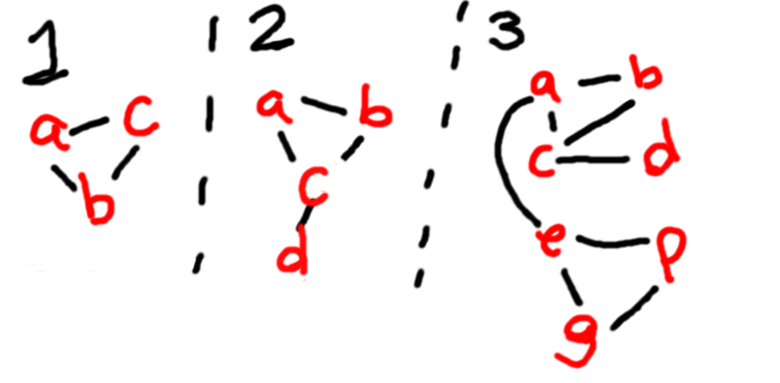 1
a c
b
2
a b
c
d
3
a b
c d
e p
g